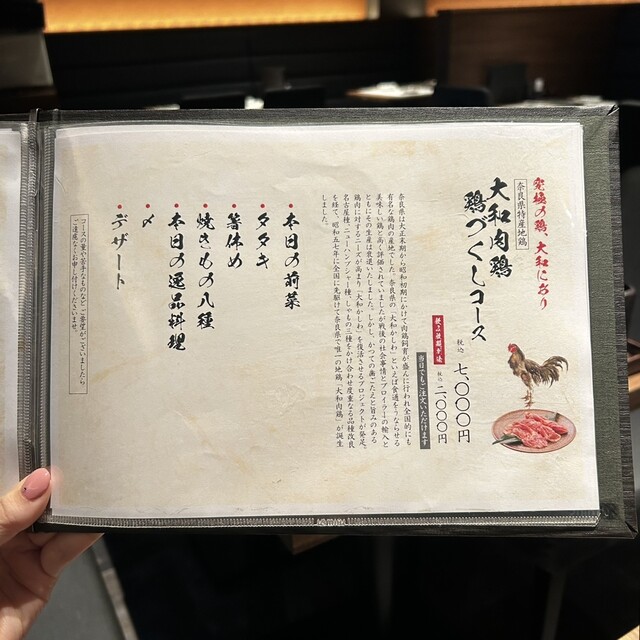 究極の鶏、大和にあり
奈良県特産地鶏
大和肉鶏
鶏づくしコース
税込 七、〇〇〇円
飲み放題付き
税込 二、〇〇〇円
当日でもご注文いただけます
奈良県は大正末期から昭和初期にかけて肉鶏飼育が盛んに行われ全国的にも
有名な鶏肉の産地でした。奈良県の「大和かしわ」といえば食通をうならせる
美味しい鶏と高く評価されていましたが戦後の社会事情とブロイラーの輸入と
ともにその生産は衰退いたしました。しかし、かつての歯ごたえと旨みのある
鶏肉に対するニーズが高まり「大和かしわ」を復活させるプロジェクトが発足。
名古屋種、ニューハンプシャー種、しゃもの三種をかけ合わせ度重なる品種改良
を経て、昭和五七年に全国に先駆けて奈良県で唯一の地鶏「大和肉鶏」が誕生
しました。
• 本日の前菜
• タタキ
• 箸休め
• 焼きもの八種
• 本日の逸品料理
• 〆
• デザート
コースの量や苦手なものなどご要望がございましたら
ご遠慮なくお申し付けくださいませ。